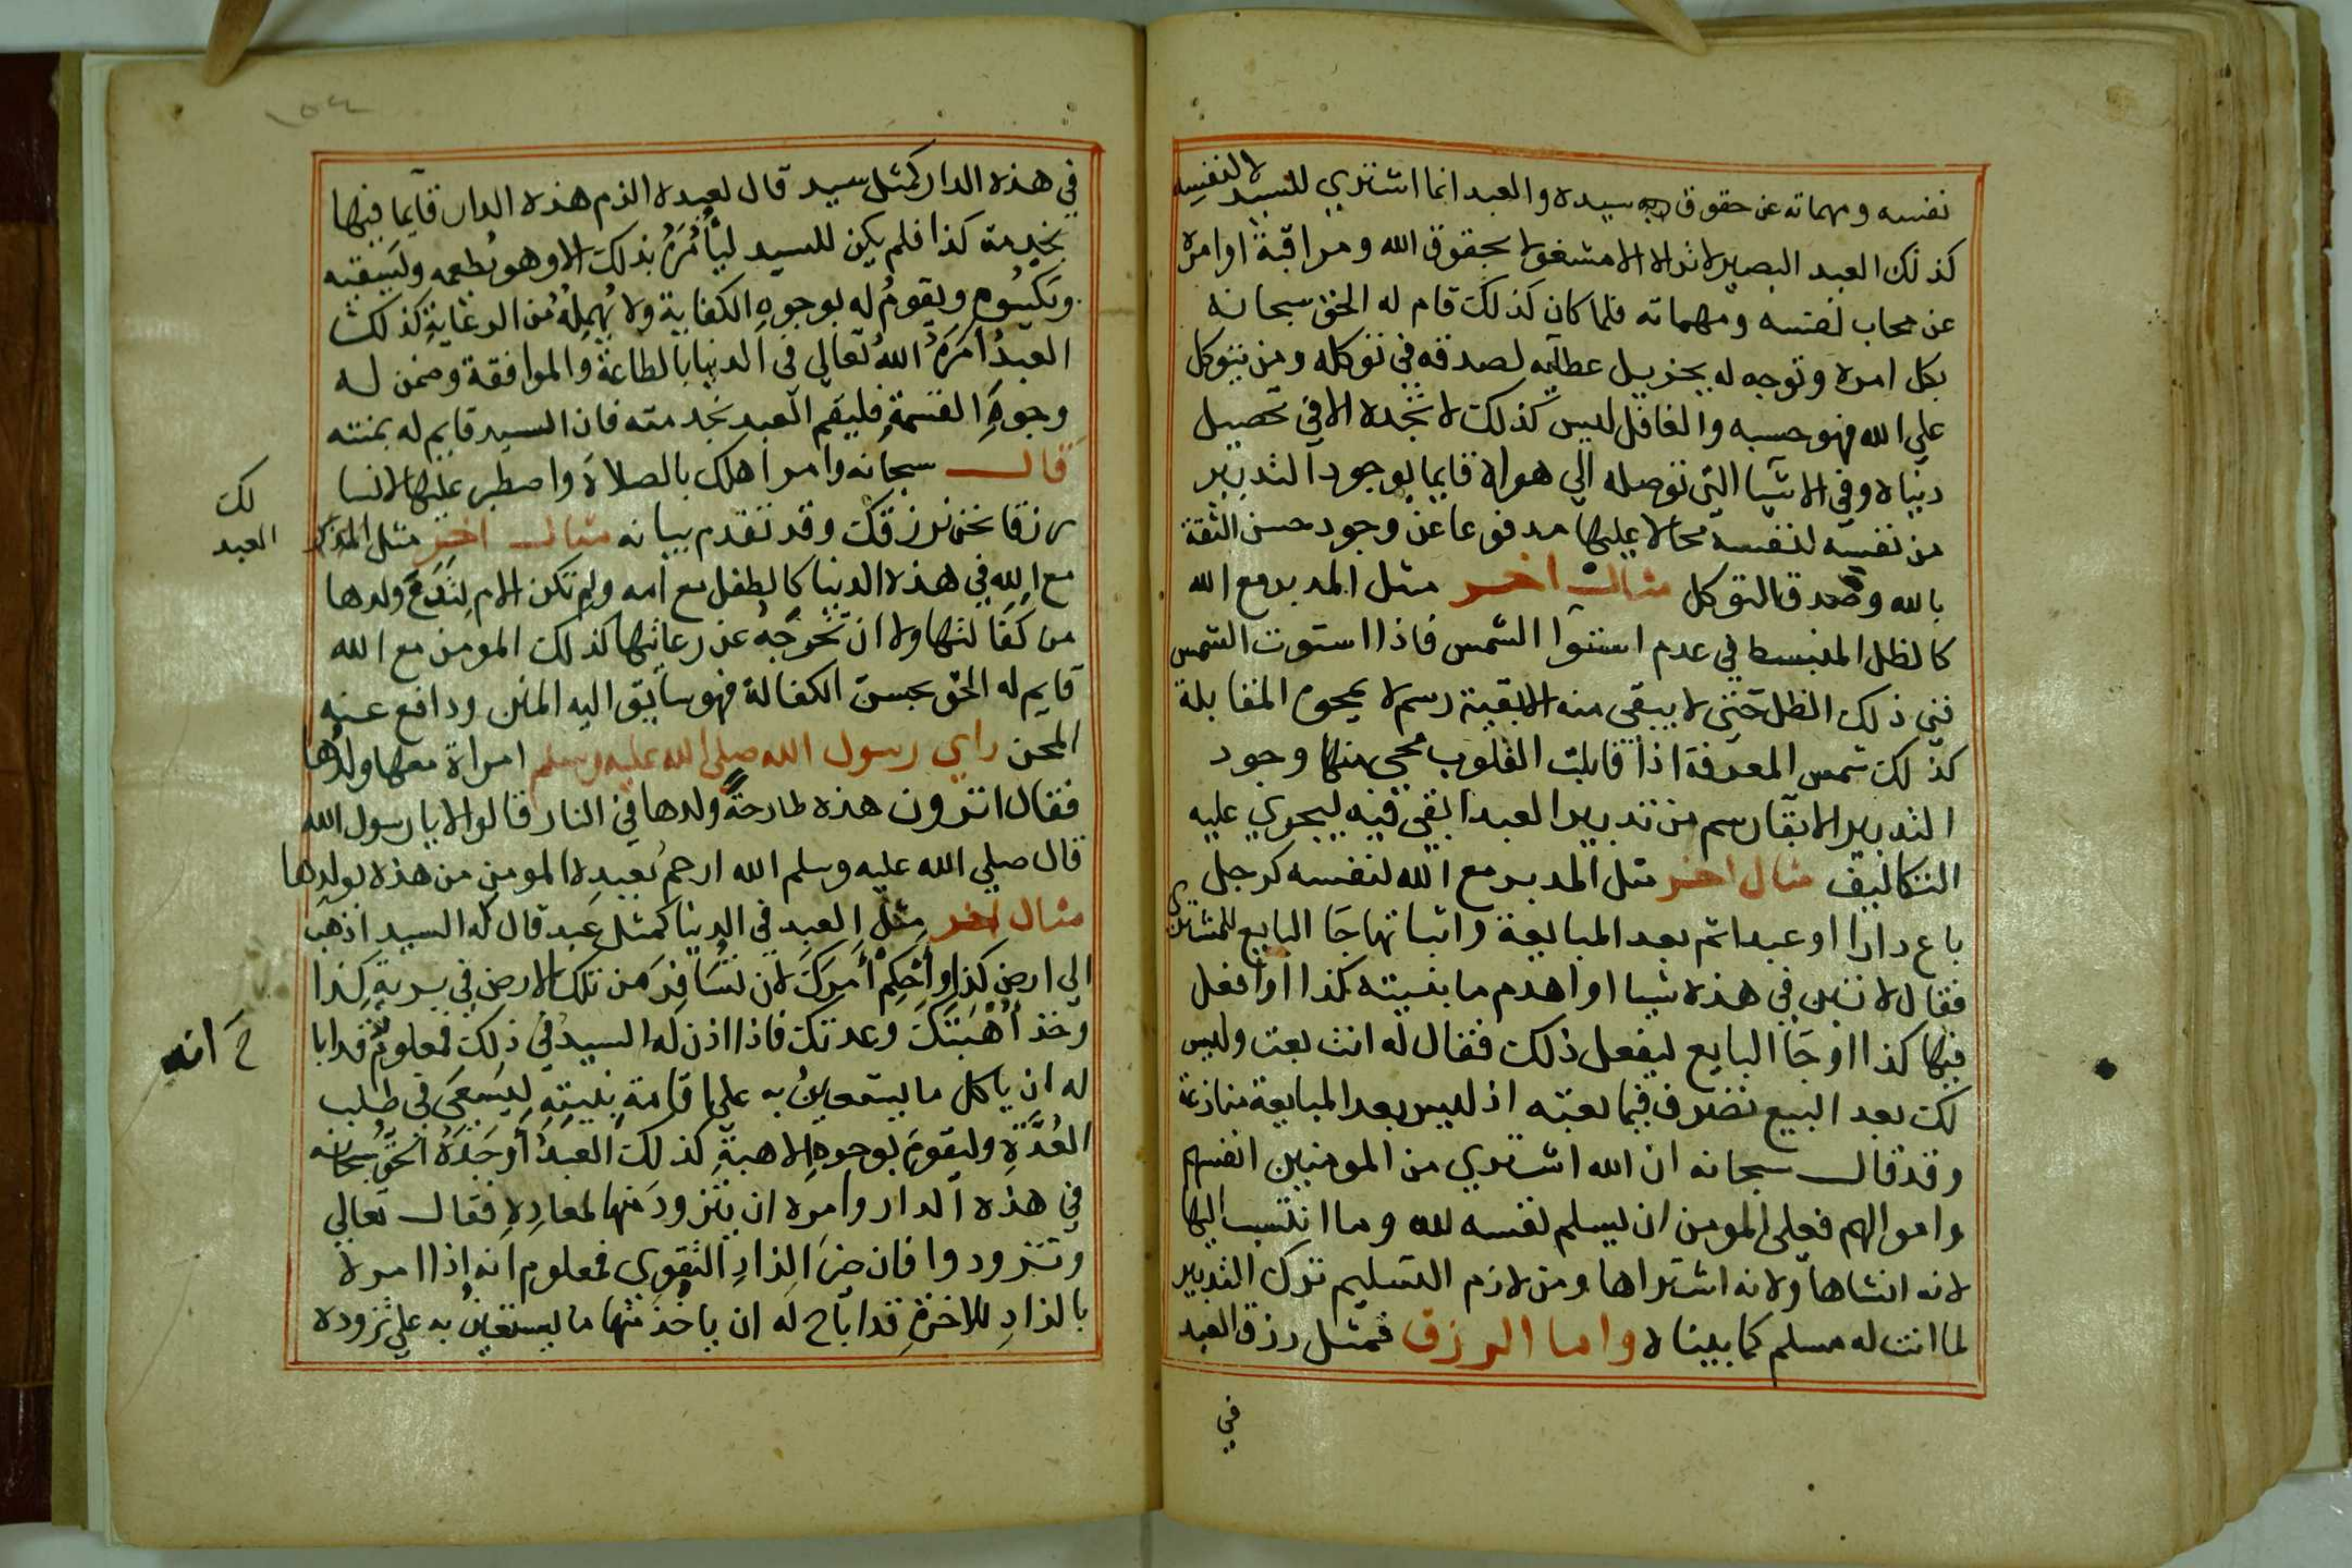 نفسه ومهماته عن حقوق سيده والعبد انما اشتري للسيد لا لنفسه
كذلك العبد البصير لا تراه الا مشغولا بحقوق الله ومراقبة اوامره
عن محاب نفسه ومهماته فلما كان كذلك قام له الحق سبحانه
بكل امره وتوجه له بجزيل عطايه لصدقه في توكله ومن يتوكل
علي الله فهو حسبه والغافل ليس كذلك لا تجده الا في تحصيل
دنياه وفي الاشيا التي توصله الي هواه قايما بوجود التدبير
من نفسه لنفسه محالا عليها مدفوعا عن وجود حسن الثقة
بالله وصدق التوكل مثال اخر مثل المدبر مع الله
كالظل المنبسط في عدم استوا الشمس فاذا استوت الشمس
فني ذلك الظل حتي لا يبقي منه الا بقية رسم لا يمحوه المقابلة
كذلك شمس المعرفة اذا قابلت القلوب محي منها وجود
التدبير الا بقا رسم من تدبير العبد ابقي فيه ليجري عليه
التكاليف مثال اخر مثل المدبر مع الله لنفسه كرجل
باع دارا او عبدا ثم بعد المبايعة واثباتها جا البايع للمشتري
فقال لا تبن في هذه شيا او اهدم ما بنيته كذا او افعل
فيها كذا او جا البايع ليفعل ذلك فقال له انت بعت وليس
لك بعد البيع تصرف فيما بعته اذ ليس بعد المبايعة منازعة
وقد قال سبحانه ان الله اشتري من المومنين انفسهم
واموالهم فعلي المومن ان يسلم نفسه لله وما انتسب اليها
لانه انشاها ولانه اشتراها ومن لازم التسليم ترك التدبير
لما انت له مسلم كما بيناه واما الرزق فمثل رزق العبد
في
في هذه الدار كمثل سيد قال لعبده الزم هذه الدار قايما فيها
بخدمة كذا فلم يكن للسيد ليأمُرَهُ بذلك الا وهو يُطعمه ويسقيه
ويكسُوه ويقومُ له بوجوهِ الكفاية ولا يُهمِلُهُ من الرعايةِ كذلك
العبدُ أمَرَهُ اللهُ تعالي في الدنيا بالطاعة والموافقة وضمن له
وجوهَ القسمةِ فليقم العبد بخدمته فان السيد قايم له بمنته
قال سبحانه وامر اهلك بالصلاة واصطبر عليها لا نسا
رزقا نحن نرزقك وقد تقدم بيانه مثال اخر مثل المدبر
لك
العبد
مع الله في هذه الدنيا كالطفل مع امه ولم تكن الام لِتَدَعَ ولدها
من كفالتها ولا ان تخرِجَهُ عن رعايتها كذلك المومن مع الله
قايم له الحق بحسن الكفالة فهو سايق اليه المنن ودافع عنه
المحن راي رسول الله صلي الله عليه وسلم امراة معها ولدُها
فقال اترون هذه طارحةً ولدها في النار قالوا لا يا رسول الله
قال صلي الله عليه وسلم الله ارحمُ بعبدِه المومنِ من هذه بولدِها
مثال اخر مِثلُ العبد في الدنيا كمثل عبد قال له السيد اذهب
الي ارض كذا وأحْكِمْ أمرَكَ لأن تُسَافِرَ من تلك الارض في برية كذا
وخذ أُهْبَتَكَ وعدتك فاذا اذن له السيد في ذلك فمعلوم قد ابا
ح انه
له ان ياكل ما يستعينُ به علي اقامة بنيتِه ليسعَي في طلب
العُدَّةِ وليقومَ بوجوهِ الاهبةِ كذلك العبدُ أوجَدَهُ الحقُّ سُبحانه
في هذه الدار وامره ان يتزودَ منها لمعادِهِ فقال تعالي
وتزودوا فان خيرَ الزادِ التقوي فمعلوم انه اذا امره
بالزادِ للاخرةِ قد اباح له ان ياخُذَ منها ما يستعينُ به علي تزوده